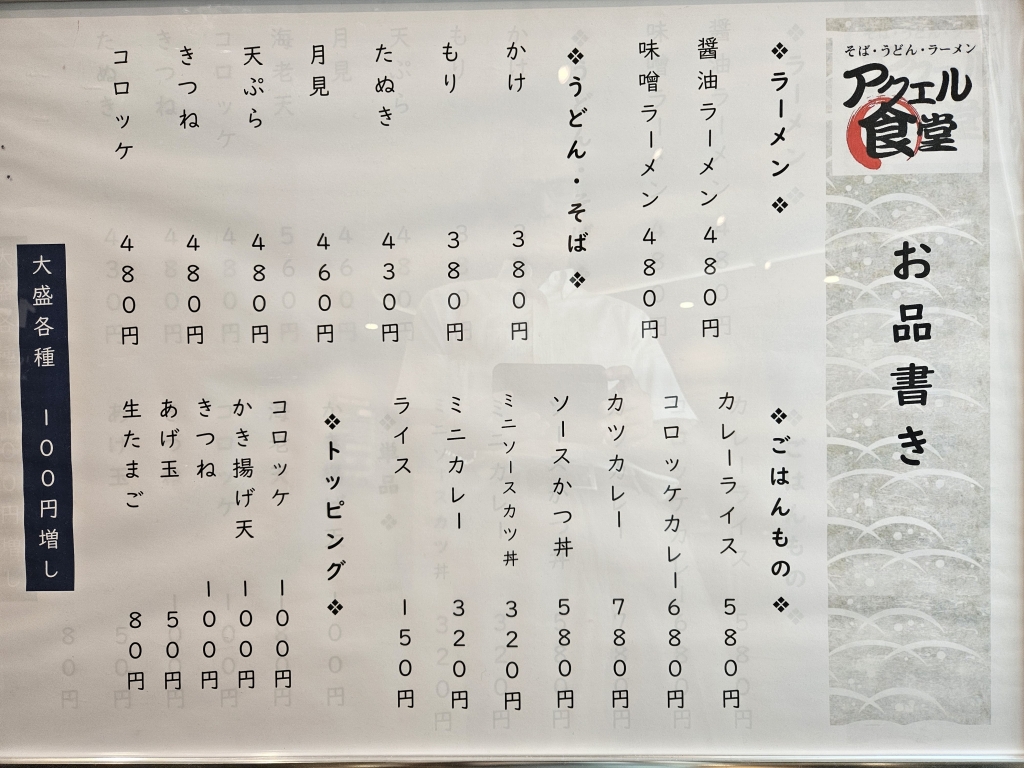 そば・うどん・ラーメン
アクエル
食堂
お品書き
❖ラーメン❖
醤油ラーメン 480円
味噌ラーメン 480円
❖うどん・そば❖
かけ 380円
もり 380円
たぬき 430円
月見 460円
天ぷら 480円
きつね 480円
コロッケ 480円
❖ごはんもの❖
カレーライス 580円
コロッケカレー 680円
カツカレー 780円
ソースかつ丼 580円
ミニソースカツ丼 320円
ミニカレー 320円
ライス 150円
❖トッピング❖
コロッケ 100円
かき揚げ天 100円
きつね 100円
あげ玉 50円
生たまご 80円
大盛各種 100円増し